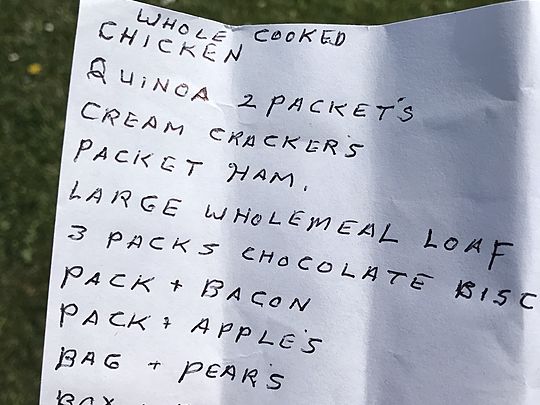 WHOLE COOKED
CHICKEN
QUINOA 2 PACKET'S
CREAM CRACKER'S
PACKET HAM.
LARGE WHOLEMEAL LOAF
3 PACKS CHOCOLATE BISC
PACK + BACON
PACK + APPLE'S
BAG + PEAR'S
BOX